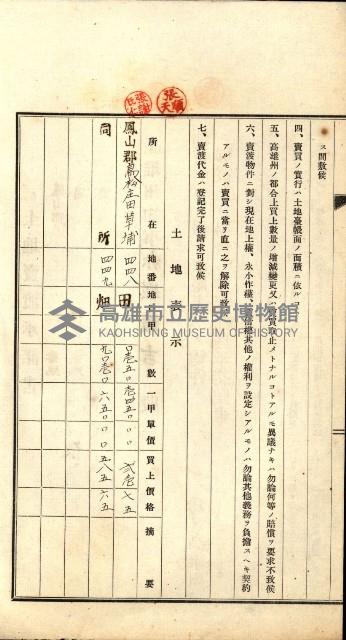 ス間敷候
四、賣買ノ實行ハ土地臺帳面ノ面積ニ依ルコ
五、高雄州ノ都合上買上數量ノ增減變更又ハ賣買取止メトナルコトアルモ異議ナキハ勿論何等ノ賠償ヲ要求不致候
六、賣渡物件ニ對シ現在地上權、永小作權、其他ノ權利ヲ設定シアルモノハ勿論其他義務ヲ負擔スヘキ契約
アルモノハ賣買ニ當リ直ニ之ヲ解除可致
七、賣渡代金ハ登記完了後請求可致候
土地表示
所在 地番 地目 甲數 一甲單價 買上價格 摘要
鳳山郡鳥松庄田草埔 四四八 田
同所 四四九 畑
高雄市立歷史博物館
KAOHSIUNG MUSEUM OF HISTORY